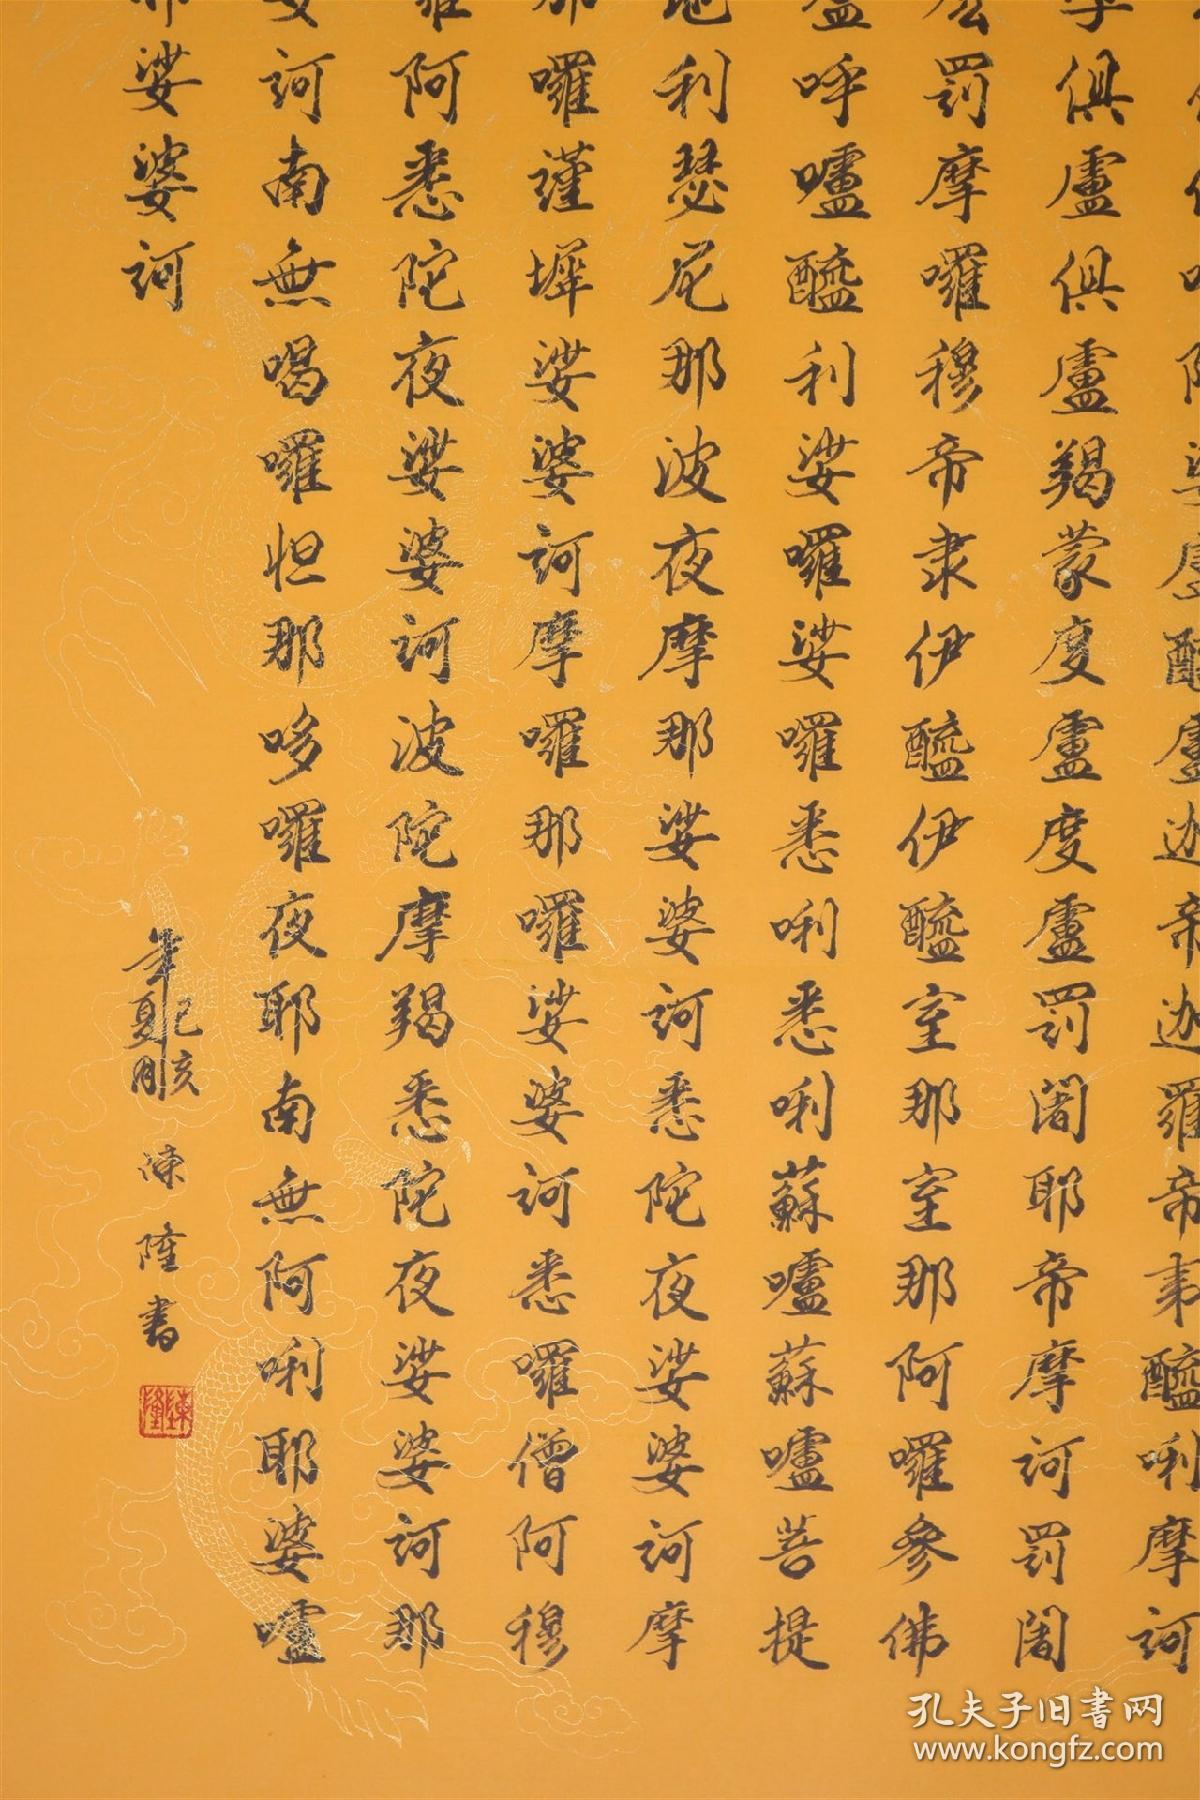 咩俱盧俱盧羯蒙度盧度盧罰闍耶帝摩訶罰闍
罰摩囉穆帝隶伊醯伊醯室那室那阿囉參佛
呼嚧醯利娑囉娑囉悉唎悉唎蘇嚧蘇嚧菩提
地利瑟尼那波夜摩那娑婆訶悉陀夜娑婆訶摩
那囉瑾墀娑婆訶摩囉那囉娑婆訶悉囉僧阿穆
囉阿悉陀夜娑婆訶波陀摩羯悉陀夜娑婆訶那
訶南無喝囉怛那哆囉夜耶南無阿唎耶婆嚧
娑婆訶
己亥
年夏月
陳隆書
陳隆
孔夫子旧书网
www.kongfz.com